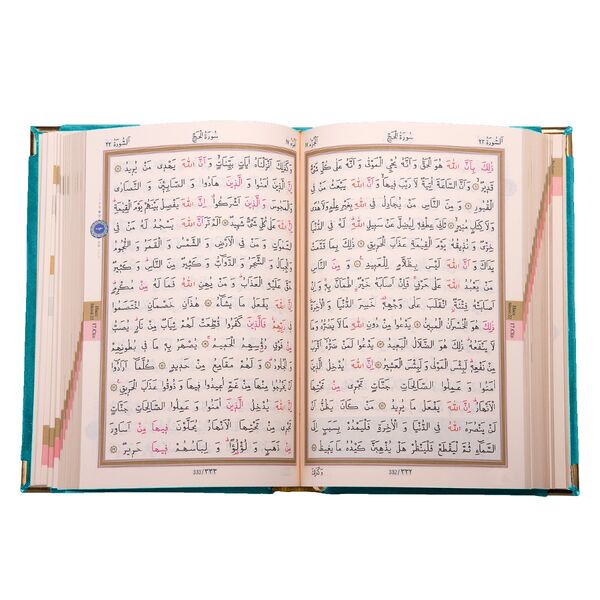 اَلسُّورَةُ ٢٢
سُورَةُ الْحَجِّ
ذٰلِكَ بِاَنَّ اللّٰهَ هُوَ الْحَقُّ وَاَنَّهُ يُحْيِ الْمَوْتٰى وَاَنَّهُ عَلٰى كُلِّ شَيْءٍ
قَدِيرٌ وَاَنَّ السَّاعَةَ اٰتِيَةٌ لَا رَيْبَ فِيهَا وَاَنَّ اللّٰهَ يَبْعَثُ مَنْ فِي
الْقُبُورِ وَمِنَ النَّاسِ مَنْ يُجَادِلُ فِي اللّٰهِ بِغَيْرِ عِلْمٍ وَلَا هُدًى
وَلَا كِتَابٍ مُنِيرٍ ثَانِيَ عِطْفِهِ لِيُضِلَّ عَنْ سَبِيلِ اللّٰهِ لَهُ فِي الدُّنْيَا
خِزْيٌ وَنُذِيقُهُ يَوْمَ الْقِيٰمَةِ عَذَابَ الْحَرِيقِ ذٰلِكَ بِمَا قَدَّمَتْ
يَدَاكَ وَاَنَّ اللّٰهَ لَيْسَ بِظَلَّامٍ لِلْعَبِيدِ وَمِنَ النَّاسِ مَنْ يَعْبُدُ
اللّٰهَ عَلٰى حَرْفٍ فَاِنْ اَصَابَهُ خَيْرٌ اطْمَاَنَّ بِهِ وَاِنْ
اَصَابَتْهُ فِتْنَةٌ انْقَلَبَ عَلٰى وَجْهِهِ خَسِرَ الدُّنْيَا وَالْاٰخِرَةَ
ذٰلِكَ هُوَ الْخُسْرَانُ الْمُبِينُ يَدْعُوا مِنْ دُونِ اللّٰهِ مَا لَا يَضُرُّهُ وَمَا
لَا يَنْفَعُهُ ذٰلِكَ هُوَ الضَّلَالُ الْبَعِيدُ يَدْعُوا لَمَنْ ضَرُّهُ اَقْرَبُ
مِنْ نَفْعِهِ لَبِئْسَ الْمَوْلٰى وَلَبِئْسَ الْعَشِيرُ اِنَّ اللّٰهَ يُدْخِلُ
الَّذِينَ اٰمَنُوا وَ عَمِلُوا الصَّالِحَاتِ جَنَّاتٍ تَجْرِي مِنْ تَحْتِهَا
الْاَنْهَارُ اِنَّ اللّٰهَ يَفْعَلُ مَا يُرِيدُ مَنْ كَانَ يَظُنُّ اَنْ لَنْ
يَنْصُرَهُ اللّٰهُ فِي الدُّنْيَا وَ الْاٰخِرَةِ فَلْيَمْدُدْ بِسَبَبٍ اِلَى
السَّمَاءِ ثُمَّ لْيَقْطَعْ فَلْيَنْظُرْ هَلْ يُذْهِبَنَّ كَيْدُهُ مَا يَغِيظُ
وَكَذٰلِكَ
332/٣٣٢
17.Cüz
سُورَةُ الْحَجِّ
اَلسُّورَةُ ٢٢
وَكَذٰلِكَ اَنْزَلْنَاهُ اٰيَاتٍ بَيِّنَاتٍ وَ اَنَّ اللّٰهَ يَهْدِي مَنْ يُرِيدُ
اِنَّ الَّذِينَ اٰمَنُوا وَ الَّذِينَ هَادُوا وَ الصَّابِئِينَ وَ النَّصَارٰى
وَ الْمَجُوسَ وَ الَّذِينَ اَشْرَكُوا اِنَّ اللّٰهَ يَفْصِلُ بَيْنَهُمْ يَوْمَ الْقِيٰمَةِ
اِنَّ اللّٰهَ عَلٰى كُلِّ شَيْءٍ شَهِيدٌ اَلَمْ تَرَ اَنَّ اللّٰهَ يَسْجُدُ لَهُ مَنْ فِي
السَّمٰوَاتِ وَ مَنْ فِي الْاَرْضِ وَ الشَّمْسُ وَ الْقَمَرُ وَ النُّجُومُ
وَ الْجِبَالُ وَ الشَّجَرُ وَ الدَّوَابُّ وَ كَثِيرٌ مِنَ النَّاسِ وَ كَثِيرٌ
حَقَّ عَلَيْهِ الْعَذَابُ وَ مَنْ يُهِنِ اللّٰهُ فَمَا لَهُ مِنْ مُكْرِمٍ
اِنَّ اللّٰهَ يَفْعَلُ مَا يَشَاءُ هٰذَانِ خَصْمَانِ اخْتَصَمُوا
فِي رَبِّهِمْ فَالَّذِينَ كَفَرُوا قُطِّعَتْ لَهُمْ ثِيَابٌ مِنْ نَارٍ يُصَبُّ
مِنْ فَوْقِ رُؤُسِهِمُ الْحَمِيمُ يُصْهَرُ بِهِ مَا فِي بُطُونِهِمْ
وَ الْجُلُودُ وَ لَهُمْ مَقَامِعُ مِنْ حَدِيدٍ كُلَّمَا اَرَادُوا اَنْ
يَخْرُجُوا مِنْهَا مِنْ غَمٍّ اُعِيدُوا فِيهَا وَ ذُوقُوا عَذَابَ الْحَرِيقِ
اِنَّ اللّٰهَ يُدْخِلُ الَّذِينَ اٰمَنُوا وَ عَمِلُوا الصَّالِحَاتِ جَنَّاتٍ
تَجْرِي مِنْ تَحْتِهَا الْاَنْهَارُ يُحَلَّوْنَ فِيهَا مِنْ اَسَاوِرَ
مِنْ ذَهَبٍ وَ لُؤْلُؤًا وَ لِبَاسُهُمْ فِيهَا حَرِيرٌ
333/٣٣٣
17.Cüz